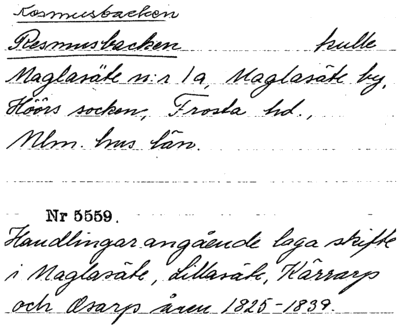 Rosmusbacken
Rosmusbacken kulle
Maglasäte n:r 1a, Maglasäte by,
Höörs socken, Frosta hd.,
Mlm. hus län.
Nr 5559.
Handlingar angående laga skifte
i Maglasäte, Lillasäte, Kärrarp
och Osarp åren 1825-1839.